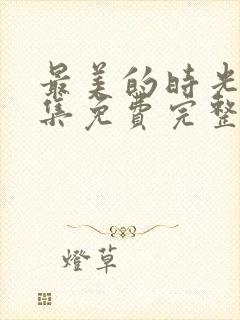 最美的时光
集免费完整
燈草